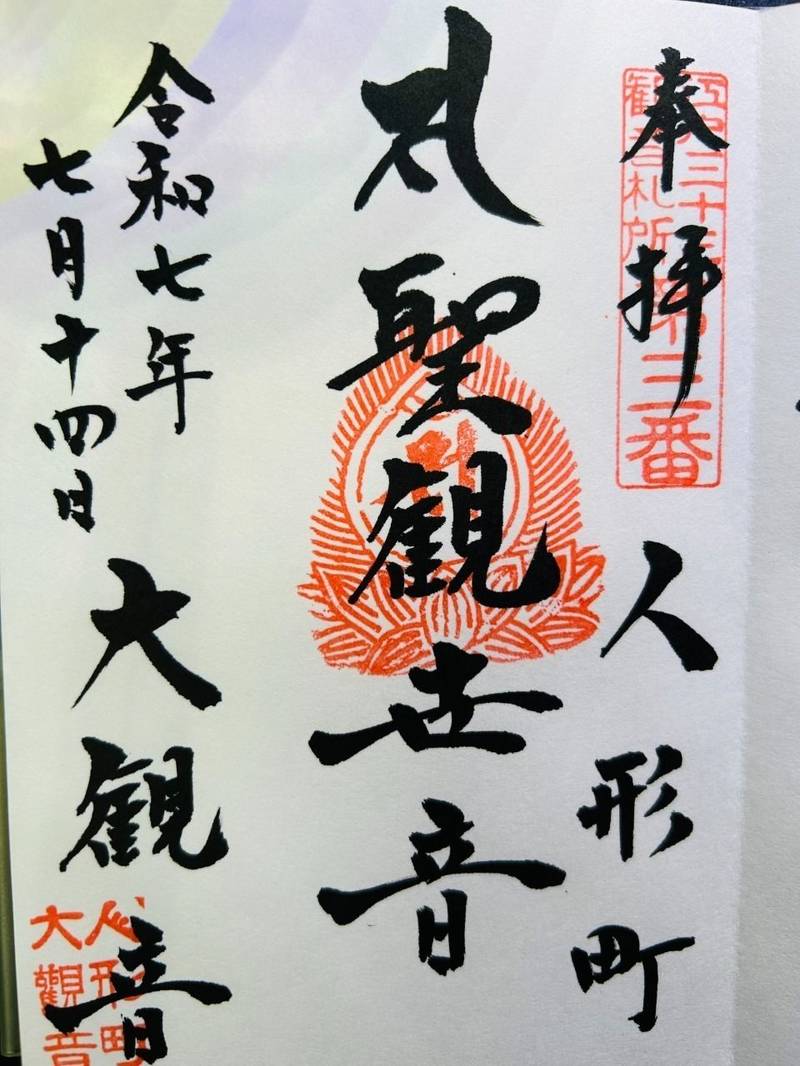 奉拝
江戸三十三
観音札所第三番
人形町
聖観世音
令和七年
七月十四日
大観音
人形町
大觀音